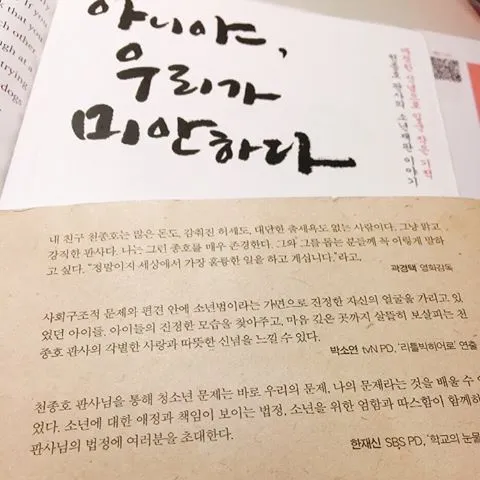 k that you
ch other
gh at a
trying
dogs.
아니야,
우리가
미안하다
따뜻한 신념으로 일군 작은 기적
천종호 판사의 소년재판 이야기
내 친구 천종호는 많은 돈도, 감춰진 허세도, 대단한 출세욕도 없는 사람이다. 그냥 맑고
강직한 판사다. 나는 그런 종호를 매우 존경한다. 그와 그를 돕는 분들께 꼭 이렇게 말하
고 싶다. “정말이지 세상에서 가장 훌륭한 일을 하고 계십니다.”라고.
곽경택 영화감독
사회구조적 문제와 편견 안에 소년범이라는 가면으로 진정한 자신의 얼굴을 가리고 있
었던 아이들. 아이들의 진정한 모습을 찾아주고, 마음 깊은 곳까지 살뜰히 보살피는 천
종호 판사의 각별한 사랑과 따뜻한 신념을 느낄 수 있다.
박소연 tvN PD, ‘리틀빅히어로’ 연출
천종호 판사님을 통해 청소년 문제는 바로 우리의 문제, 나의 문제라는 것을 배울 수 있
었다. 소년에 대한 애정과 책임이 보이는 법정, 소년을 위한 엄함과 따스함이 함께하
판사님의 법정에 여러분을 초대한다.
한재신 SBS PD, ‘학교의 눈물